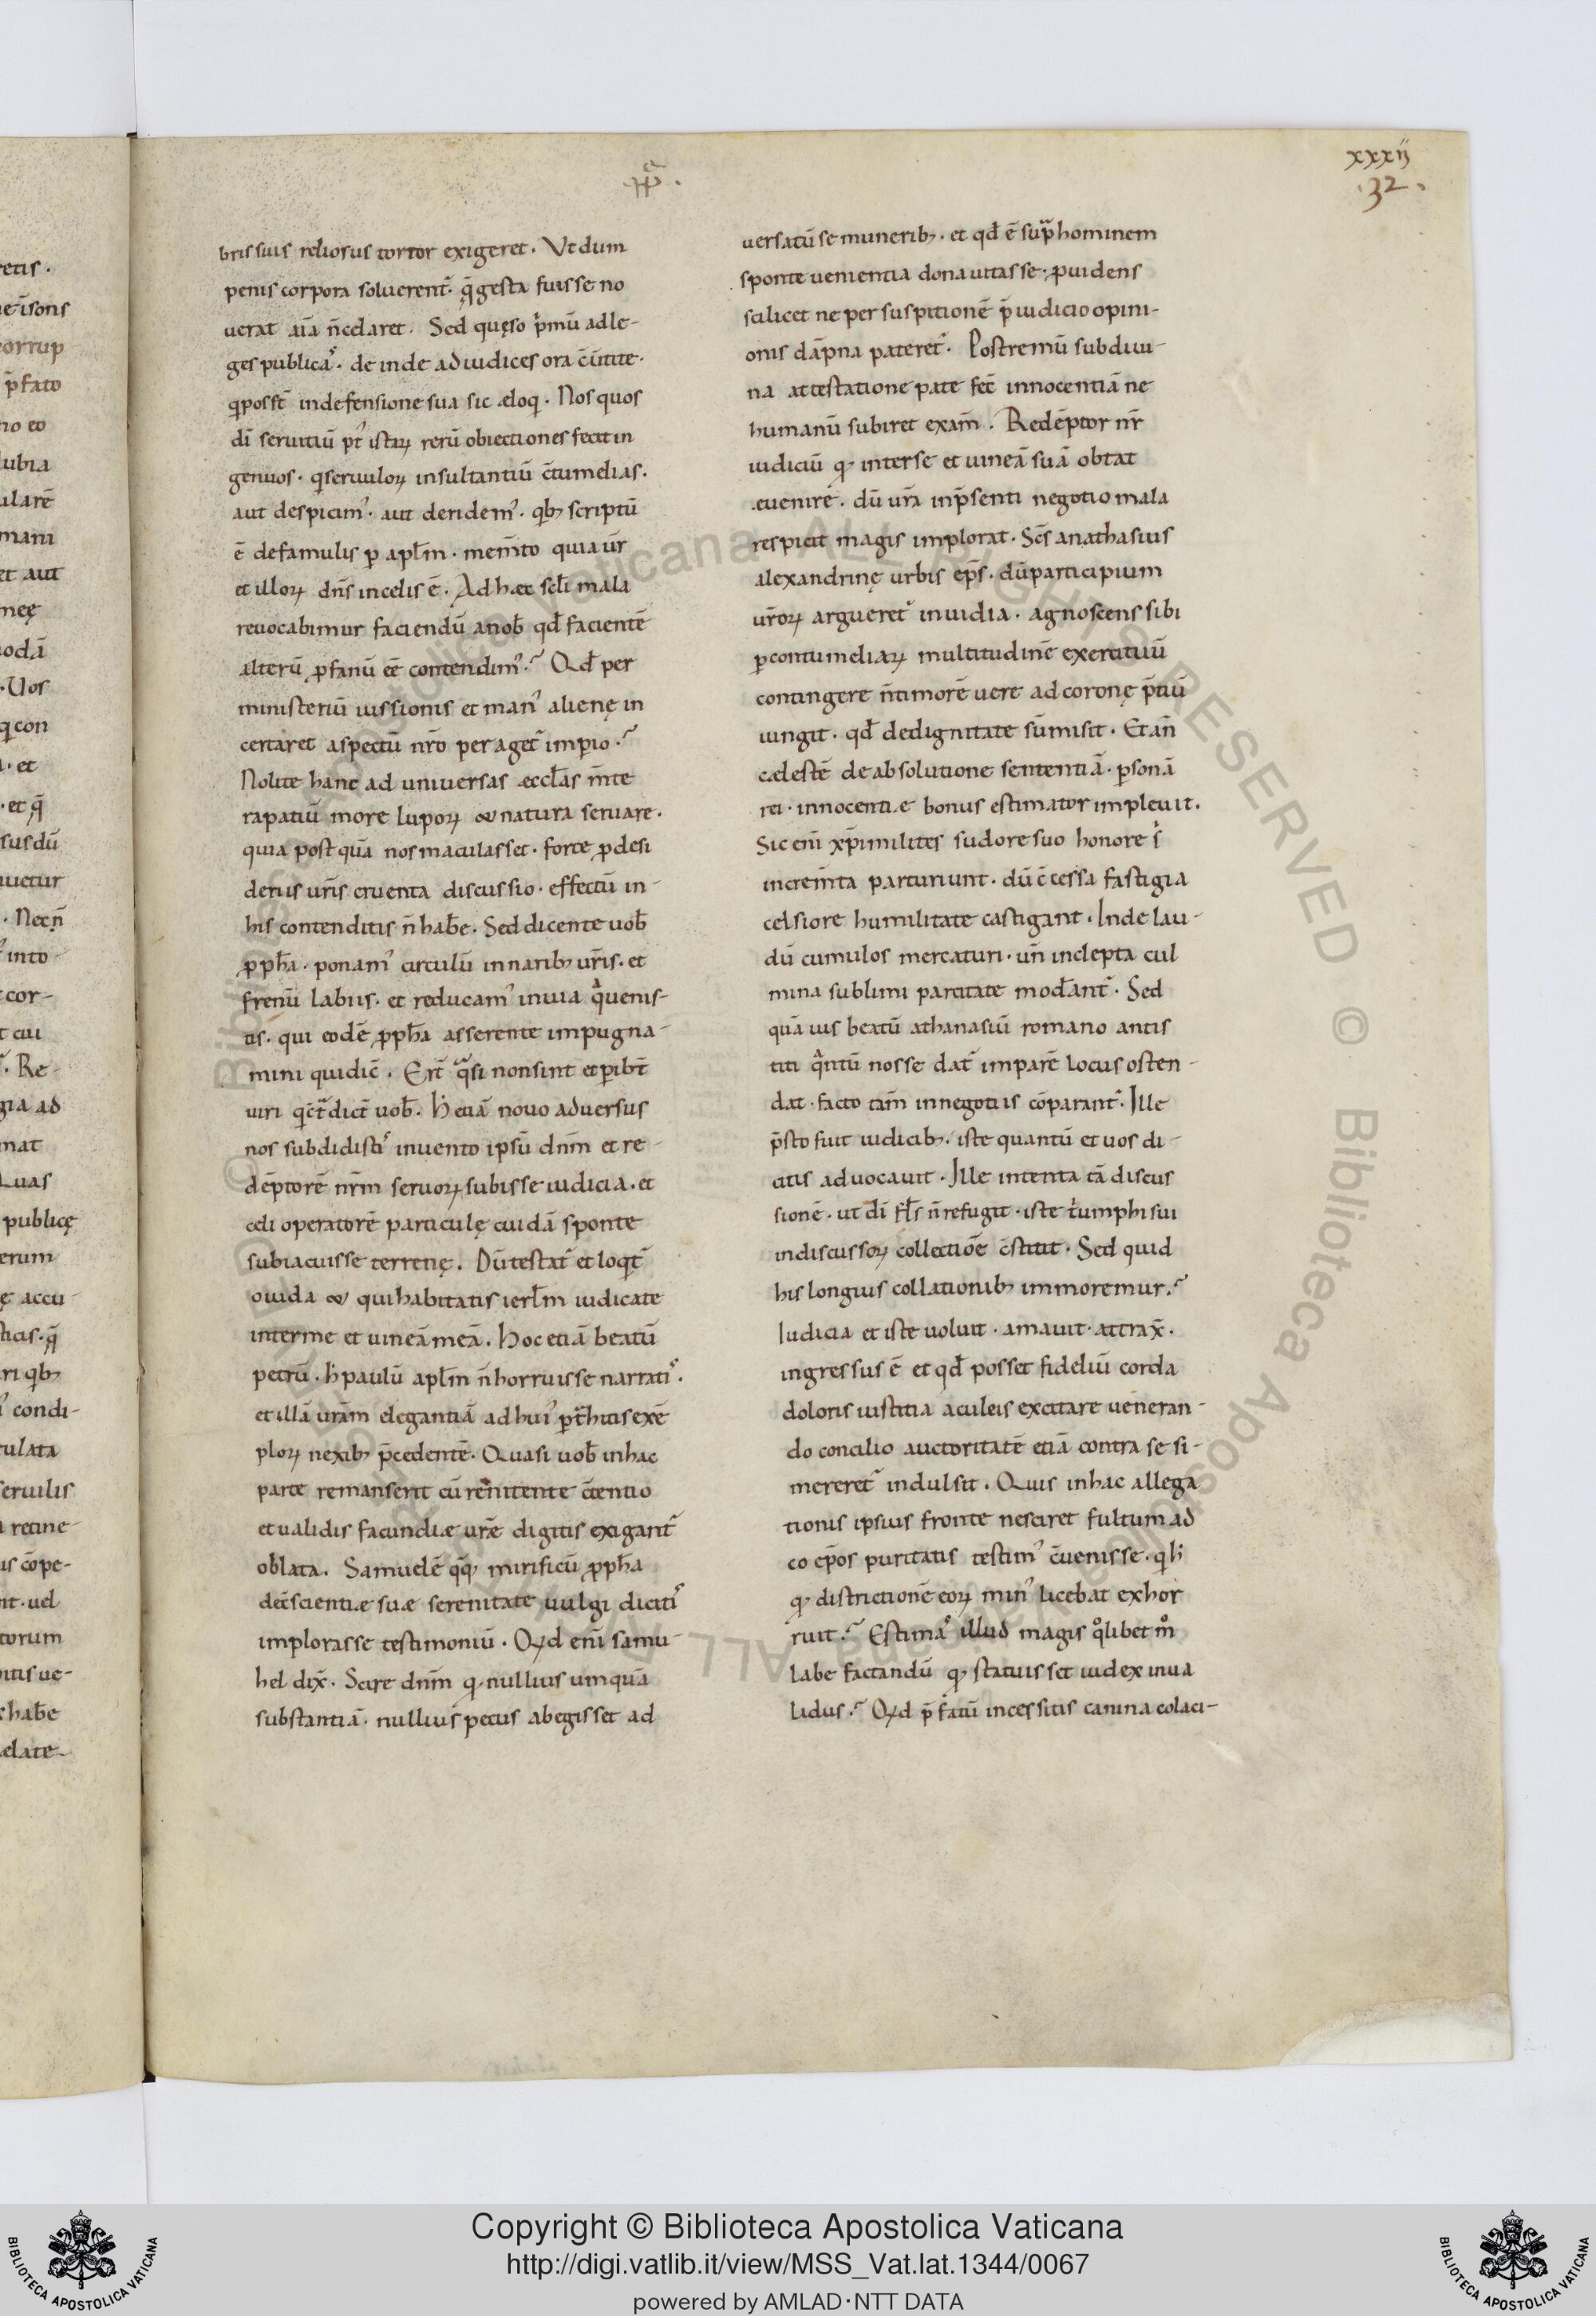 xxxij
.32.
bris suis reliosus tortor exigeret. Vt dum
penis corpora soluerent̄. q̄ gesta fuisse no
uerat aīa n̄ celaret. Sed quęso p̍mū ad le-
ges publicā. de inde ad iudices ora c̄uitite.
in defensione sua sic æloq. Nos quos
dī seruitiū istaꝝ rerū obiectiones fecit in
genuos. q seruuloꝝ insultantiū c̄tumelias.
aut despicim᾽. aut deridem᾽. qb; scriptū
ē de famulis ꝑ apl̄m. mem̄to quia ur̄
et illoꝝ dn̄s in celis ē. Ad hæc scl̄i mala
reuocabimur faciendū a nob̄ qd̄ facientē
alterū ꝓfanū eē contendim᾽? Qd̄ per
ministeriū iussionis et man᾽ alienę in
certaret aspectū nr̄o perageret̄ imꝑio?
Nolite hanc ad uniuersas æccl̄as m̄te
rapatiū more lupoꝝ & natura seruare.
quia postquā nos maculasset. forte ꝓ desi
deriis ur̄is cruenta discussio. effectū in-
his contenditis n̄ hab̄e. Sed dicente uob̄
ꝓph̄a. ponam᾽ circulū in narib; ur̄is. et
frenū labiis. et reducam᾽ in uia qᵃ uenis-
tis. qui eodē ꝓph̄a asserente impugna-
mini qui dic̄. Ert̄ qᵃsi non sint et ꝑibt̄
uiri dict̄ uob̄. H̍ etiā nouo aduersus
nos subdidisti᾽ inuento ipsū dn̄m et re-
dēptorē nr̄m seruoꝝ subisse iudicia. et
celi operatorē particulę cuidā sponte
subiacuisse terrenę. Dū testat̄ et loqt̄
o iuda & qui habitatis ierl̄m iudicate
inter me et uineā meā. Hoc etiā beatū
petrū. h̍ paulū apl̄m n̄ horruisse narrati᾽.
et illā urām elegantiā ad hui᾽ exē
ploꝝ nexib; p̄cedentē. Quasi uob̄ in hac
parte remanserit cū renitente c̄tentio
et ualidis facundiæ ur̄e digitis exigant̄
oblata. Samuelē qq; mirificū ꝓph̄a
dec̄scientiæ suæ serenitate uulgi diciti᾽
implorasse testimoniū. Qd enī samu-
hel dix̄. Scire dn̄m q; nullius umquā
substantiā. nullius pecus abegisset ad
uersatū se munerib;. et qd̄ ē supᵃ hominem
sponte uenientia dona uitasse. ꝓuidens
scilicet ne per suspitionē p̄iudicio opini-
onis dāpna pateret̄. Postremū sub diui-
na attestatione pate fec̄ innocentiā ne
humanū subiret exam̄. Redēptor nr̄
iudiciū q; inter se et uineā suā obtat
euenire. dū ur̄a in p̄senti negotio mala
respicit magis implorat. Sc̄s anathasius
alexandrinę urbis ep̄s. dū participium
ur̄oꝝ argueret̄ inuidia. agnoscens sibi
ꝑ contumeliaꝝ multitudinē exercitiū
contingere n̄ timorē uere ad coronę p̄tiū
iungit. qd̄ de dignitate sūmisit. Et an̄
cælestē de absolutione sententiā. ꝑsonā
rei. innocentiæ bonus estimator impleuit.
Sic enī xp̄i milites sudore suo honore s̍
increm̄ta parturiunt. dū c̄cessa fastigia
celsiore humilitate castigant. Inde lau-
dū cumulos mercaturi. un̄ inclepta cul
mina sublimi parcitate mod̄ant̄. Sed
quā uis beatū athanasiū romano antis
titi qᵃntū nosse dat̄ imparē locus osten-
dat. facto tam̄ in negotiis cōparant̄. Ille
p̄sto fuit iudicib;. iste quantū et uos di-
citis aduocauit. Ille intenta tā discus
sionē. ut dī fl̄s n̄ refugit. iste t̍umphi sui
indiscussoꝝ collectiōe c̄stitit. Sed quid
his longius collationib; immoremur?
Iudicia et iste uoluit. amauit. attrax̄.
ingressus ē et qd̄ posset fideliū corda
doloris iustitia aculeis excitare ueneran-
do concilio auctoritatē etiā contra se si-
mereret̄ indulsit. Quis in hac allega
tionis ipsius fronte nesciret fultum ad
co ep̄os puritatis testim᾽ c̄uenisse.
q; districtionē eoꝝ min᾽ licebat exhor
ruit? Estima᾽ illud magis qͦlibet mͦ
labe factandū q; statuisset iudex inua
lidus? Qd p̄fatū incessitis canina eolaci-
Copyright © Biblioteca Apostolica Vaticana
http://digi.vatlib.it/view/MSS_Vat.lat.1344/0067
powered by AMLAD·NTT DATA
BIBLIOTECA APOSTOLICA VATICANA
BIBLIOTECA APOSTOLICA VATICANA